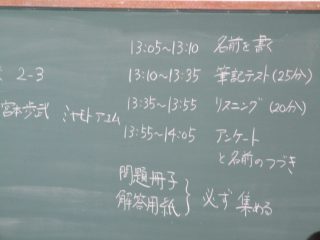 13:05~13:10 名前を書く
2-3 13:10~13:35 筆記テスト(25分)
宮本歩武 ミヤモトアユム 13:35~13:55 リスニング(20分)
13:55~14:05 アンケート
と名前のつづき
問題冊子
解答用紙 } 必ず集める